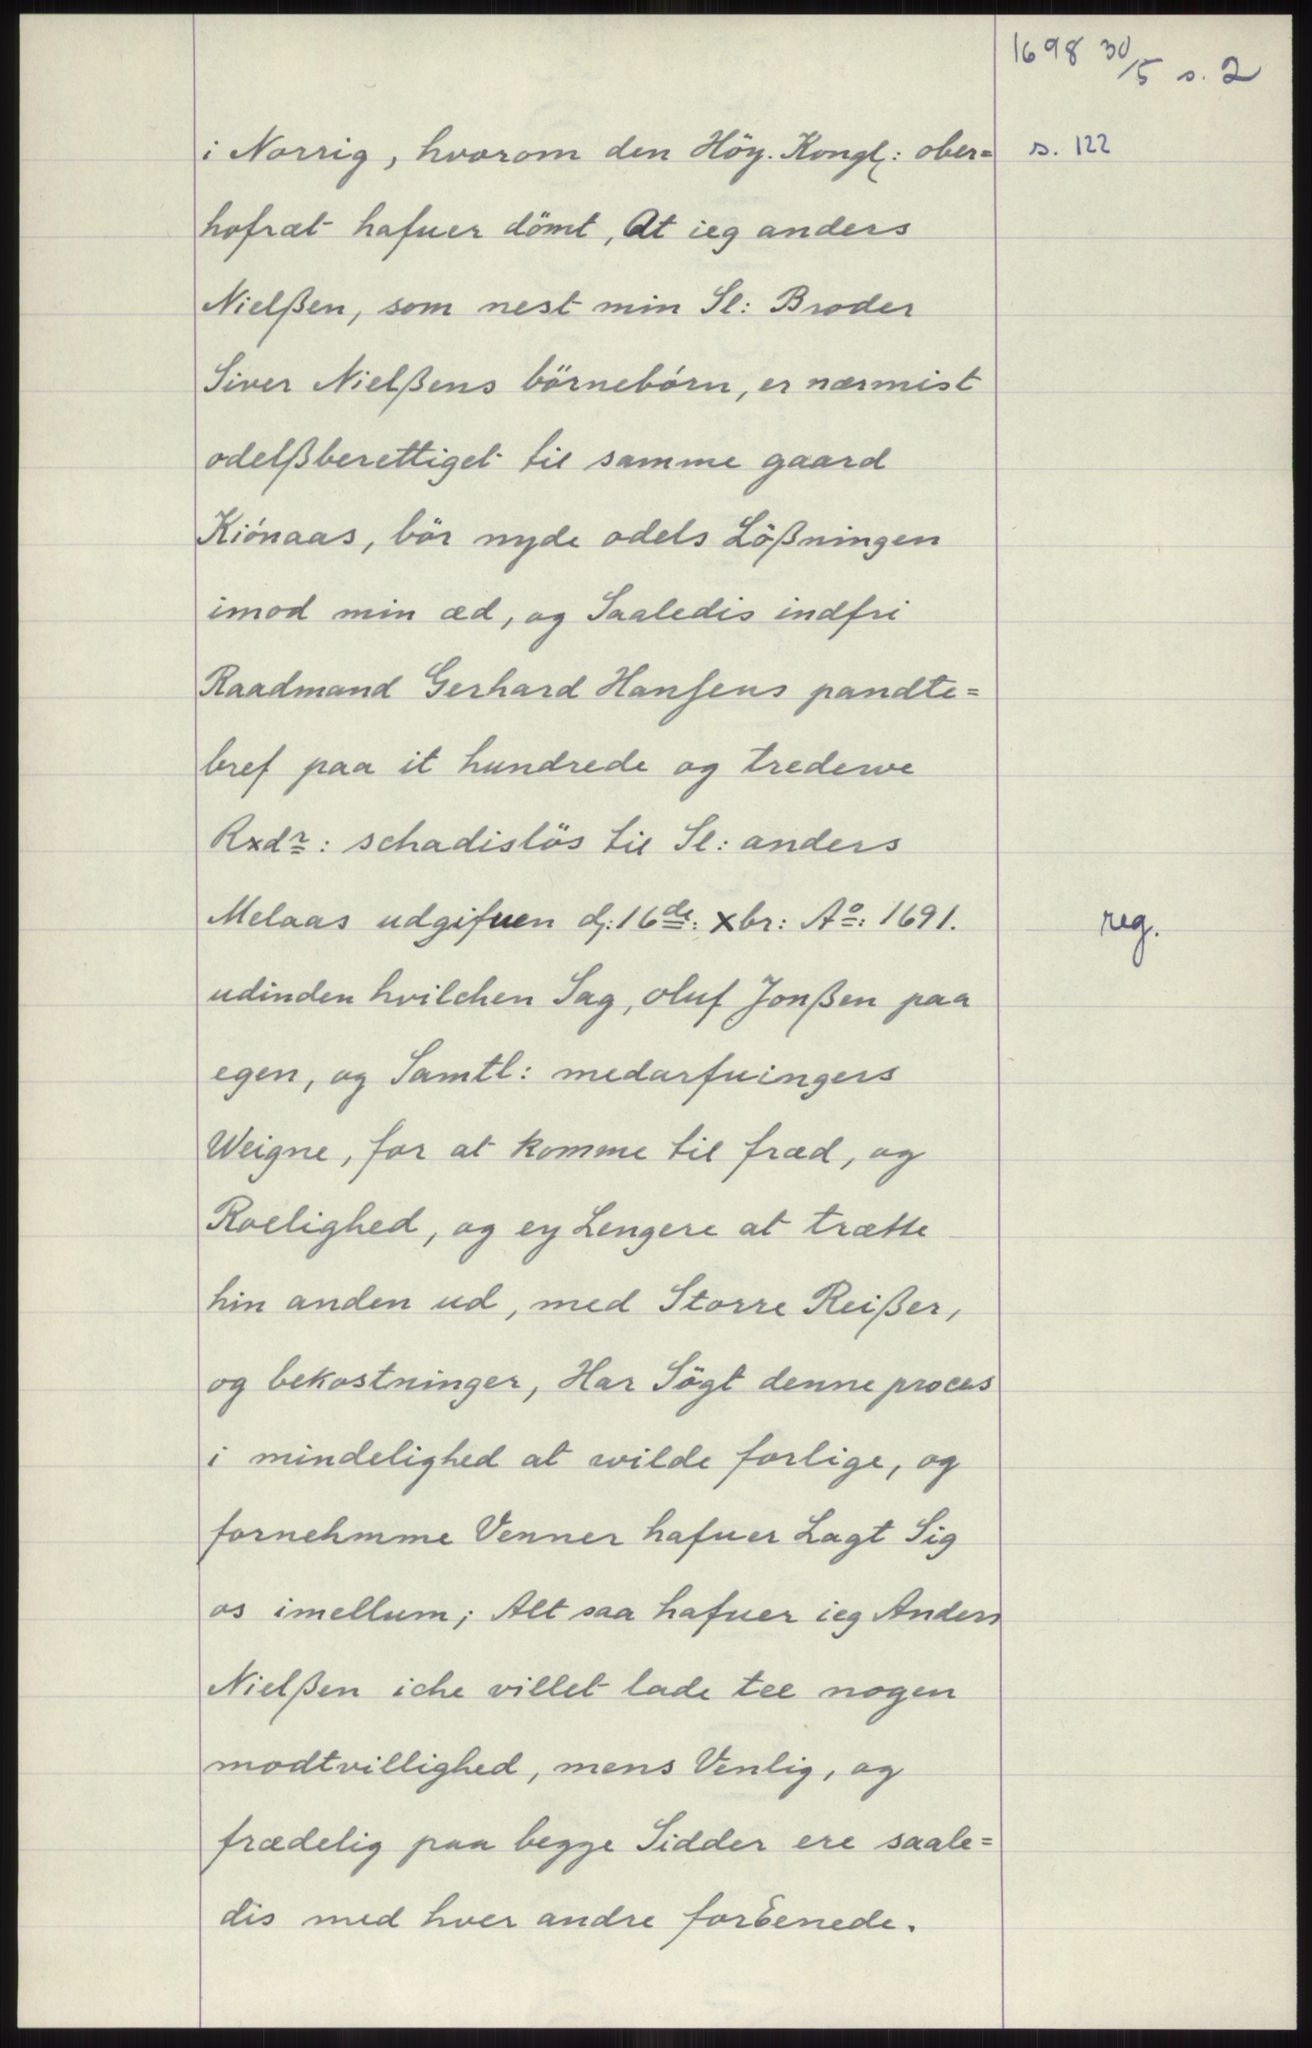 1698 30/5 s. 2
i Norrig, hvorom den Höÿ. Kongl: ober= s. 122
hofræt hafuer dömt, At ieg anders
Nielßen, som nest min Sl: Broder
Siver Nielßens börnebórn, er nærmist
odelßberettiget til samme gaard
Kiónaas, bör nyde odels Lößningen
imod min æd, og Saaledis indfri
Raadmand Gerhard Hansens pandte=
bref paa it hundrede og tredewe
Rxdr: schadislös til Sl: anders
Melaas udgifuen d: 16de: xbr: Ao: 1691. reg.
udinden hvilchen Sag, oluf Jonßen paa
egen, og Samtl: medarfuingers
Weigne, for at komme til fræd, og
Roelighed, og ey Lengere at trætte
hin anden ud, med Storre Reißer,
og bekostninger, Har Sögt denne proces
i mindelighed at wilde forlige, og
fornehmme Venner hafuer Lagt Sig
os imellum; Alt saa hafuer ieg Anders
Nielßen iche villet lade tee nogen
modtvillighed, mens Venlig, og
frædelig paa begge Sidder ere saale=
dis med hver andre forEenede.